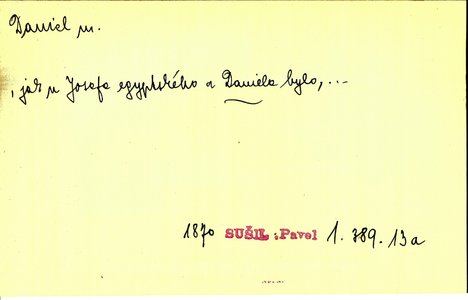 Daniel m.
, jak u Josefa egyptského a Daniela bylo, ...
1870 SUŠIL : Pavel 1. 389. 13a